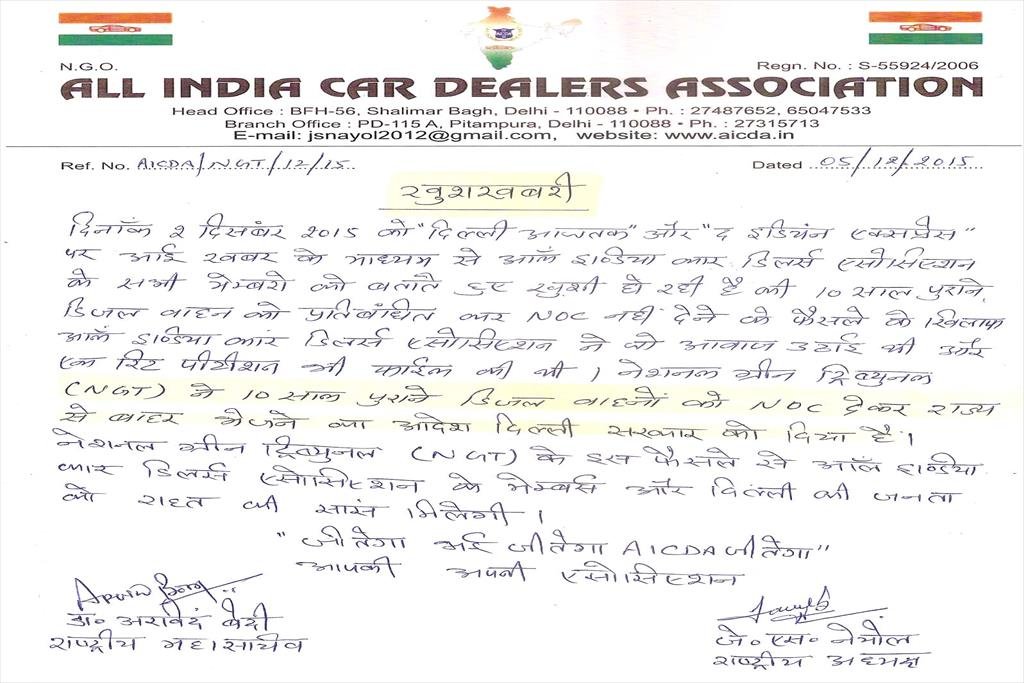 N.G.O.
Regn. No. : S-55924/2006
ALL INDIA CAR DEALERS ASSOCIATION
Head Office : BFH-56, Shalimar Bagh, Delhi - 110088 • Ph. : 27487652, 65047533
Branch Office : PD-115 A, Pitampura, Delhi - 110088 • Ph. : 27315713
E-mail: jsnayol2012@gmail.com, website: www.aicda.in
Ref. No. AICDA/NGT/12/15
Dated 05/12/2015
खुशखबरी
दिनाँक 2 दिसंबर 2015 को "दिल्ली आजतक" और "द इंडियन एक्सप्रेस"
पर आई खबर के माध्यम से आॅल इण्डिया कार डिलर्स एसोसिएशन
के सभी मेम्बरो को बताते हुए खुशी हो रही है की 10 साल पुराने
डिजल वाहन को प्रतिबंधित कर NOC नही देने के फैसले के खिलाफ
आॅल इण्डिया कार डिलर्स एसोसिएशन ने जो आवाज उठाई थी और
एक रिट पीटीशन भी फाईल की थी । नेशनल ग्रीन ट्रिब्युनल
(NGT) ने 10 साल पुराने डिजल वाहनो को NOC देकर राज्य
से बाहर भेजने का आदेश दिल्ली सरकार को दिया है ।
नेशनल ग्रीन ट्रिब्युनल (NGT) के इस फैसले से आॅल इण्डिया
कार डिलर्स एसोसिएशन के मेम्बर्स और दिल्ली की जनता
को राहत की सांस मिलेगी ।
"जीतेगा भई जीतेगा AICDA जीतेगा"
आपकी अपनी एसोसिएशन
डा॰ अरविंद बेदी
राष्ट्रीय महासचिव
जे॰ एस॰ नेयोल
राष्ट्रीय अध्यक्ष